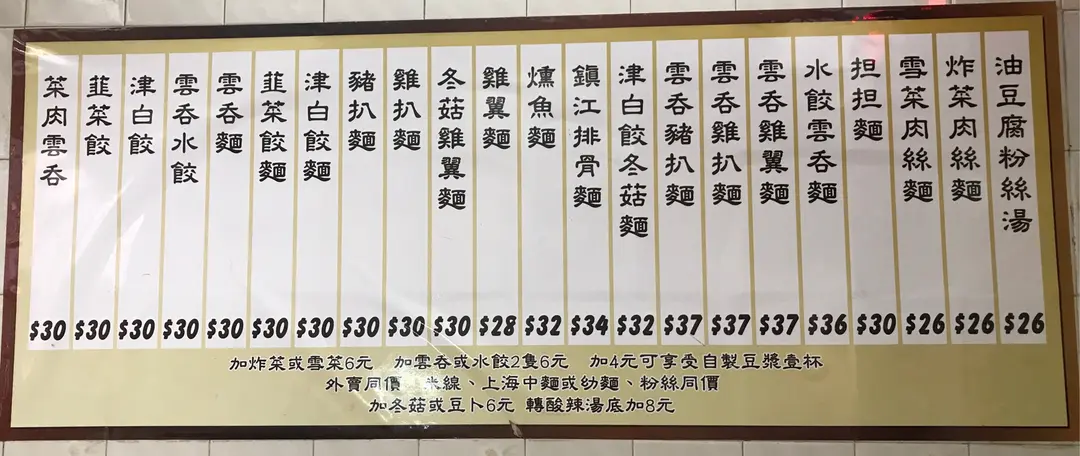 油豆腐粉絲湯 $26
炸菜肉絲麵 $26
雪菜肉絲麵 $26
担担麵 $30
水餃雲吞麵 $36
雲吞雞翼麵 $37
雲吞雞扒麵 $37
雲吞豬扒麵 $37
津白餃冬菇麵 $32
鎮江排骨麵 $34
燻魚麵 $32
雞翼麵 $28
冬菇雞翼麵 $30
雞扒麵 $30
豬扒麵 $30
津白餃麵 $30
韮菜餃麵 $30
雲吞麵 $30
雲吞水餃 $30
津白餃 $30
韮菜餃 $30
菜肉雲吞 $30
加炸菜或雪菜6元 加雲吞或水餃2隻6元 加4元可享受自製豆漿壹杯
外賣同價 米線、上海中麵或幼麵、粉絲同價
加冬菇或豆卜6元 轉酸辣湯底加8元